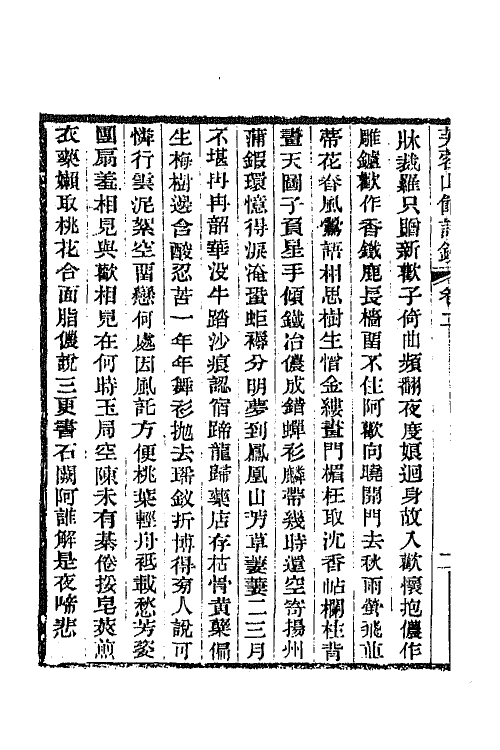 芙蓉山館詩鈔 卷二 二
牀裁羅只贈新歡子倚曲頻翻夜度娘迴身故入歡懷抱儂作
雕鑪歡作香鐵鹿長檣留不住阿歡向曉開門去秋雨螢飛並
蒂花春風鶯語相思樹生憎金縷畫門楣枉取沈香帖欄柱背
畫天圖子頁星手傾鐵冶儂成錯蟬衫麟帶幾時還空寄揚州
蒲鍜環憶得淚淹蛩蚷褥分明夢到鳳凰山芳草萋萋二三月
不堪冉冉韶華沒牛踏沙痕認宿蹄龍歸藥店存枯骨黃蘗偏
生梅樹邊含酸忍苦一年年舞衫拋去璠釵折博得旁人說可
憐行雲泥絮空留戀何處因風託方便桃葉輕舟祗載愁芳姿
團扇羞相見與歡相見在何時玉局空陳未有棊倦挼皂莢煎
衣藥嬾取桃花合面脂儂說三更書石闕阿誰解是夜啼悲